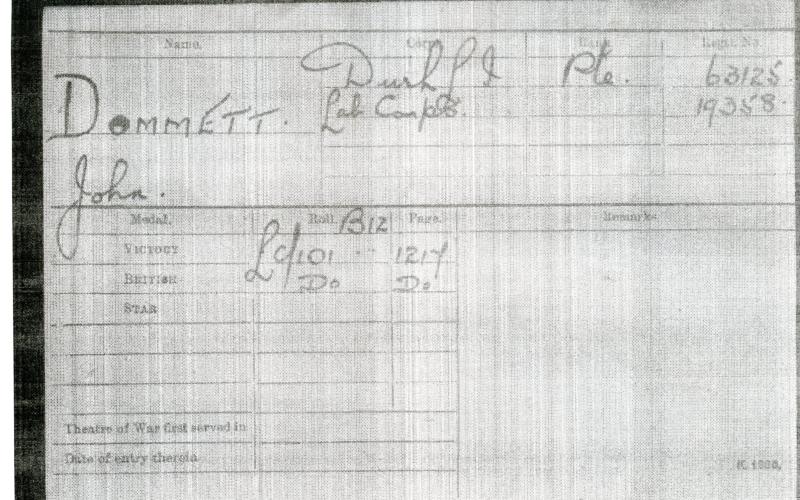 Name. Corps. Rank. Regtl. No.
DOMMETT. Durh L I Pte. 63125.
Lab Corps. 19358.
John.
Medal. Roll. Page. Remarks.
B12
VICTORY LC/101 " 1217
BRITISH Do Do
STAR
Theatre of War first served in
Date of entry therein
K. 1380.